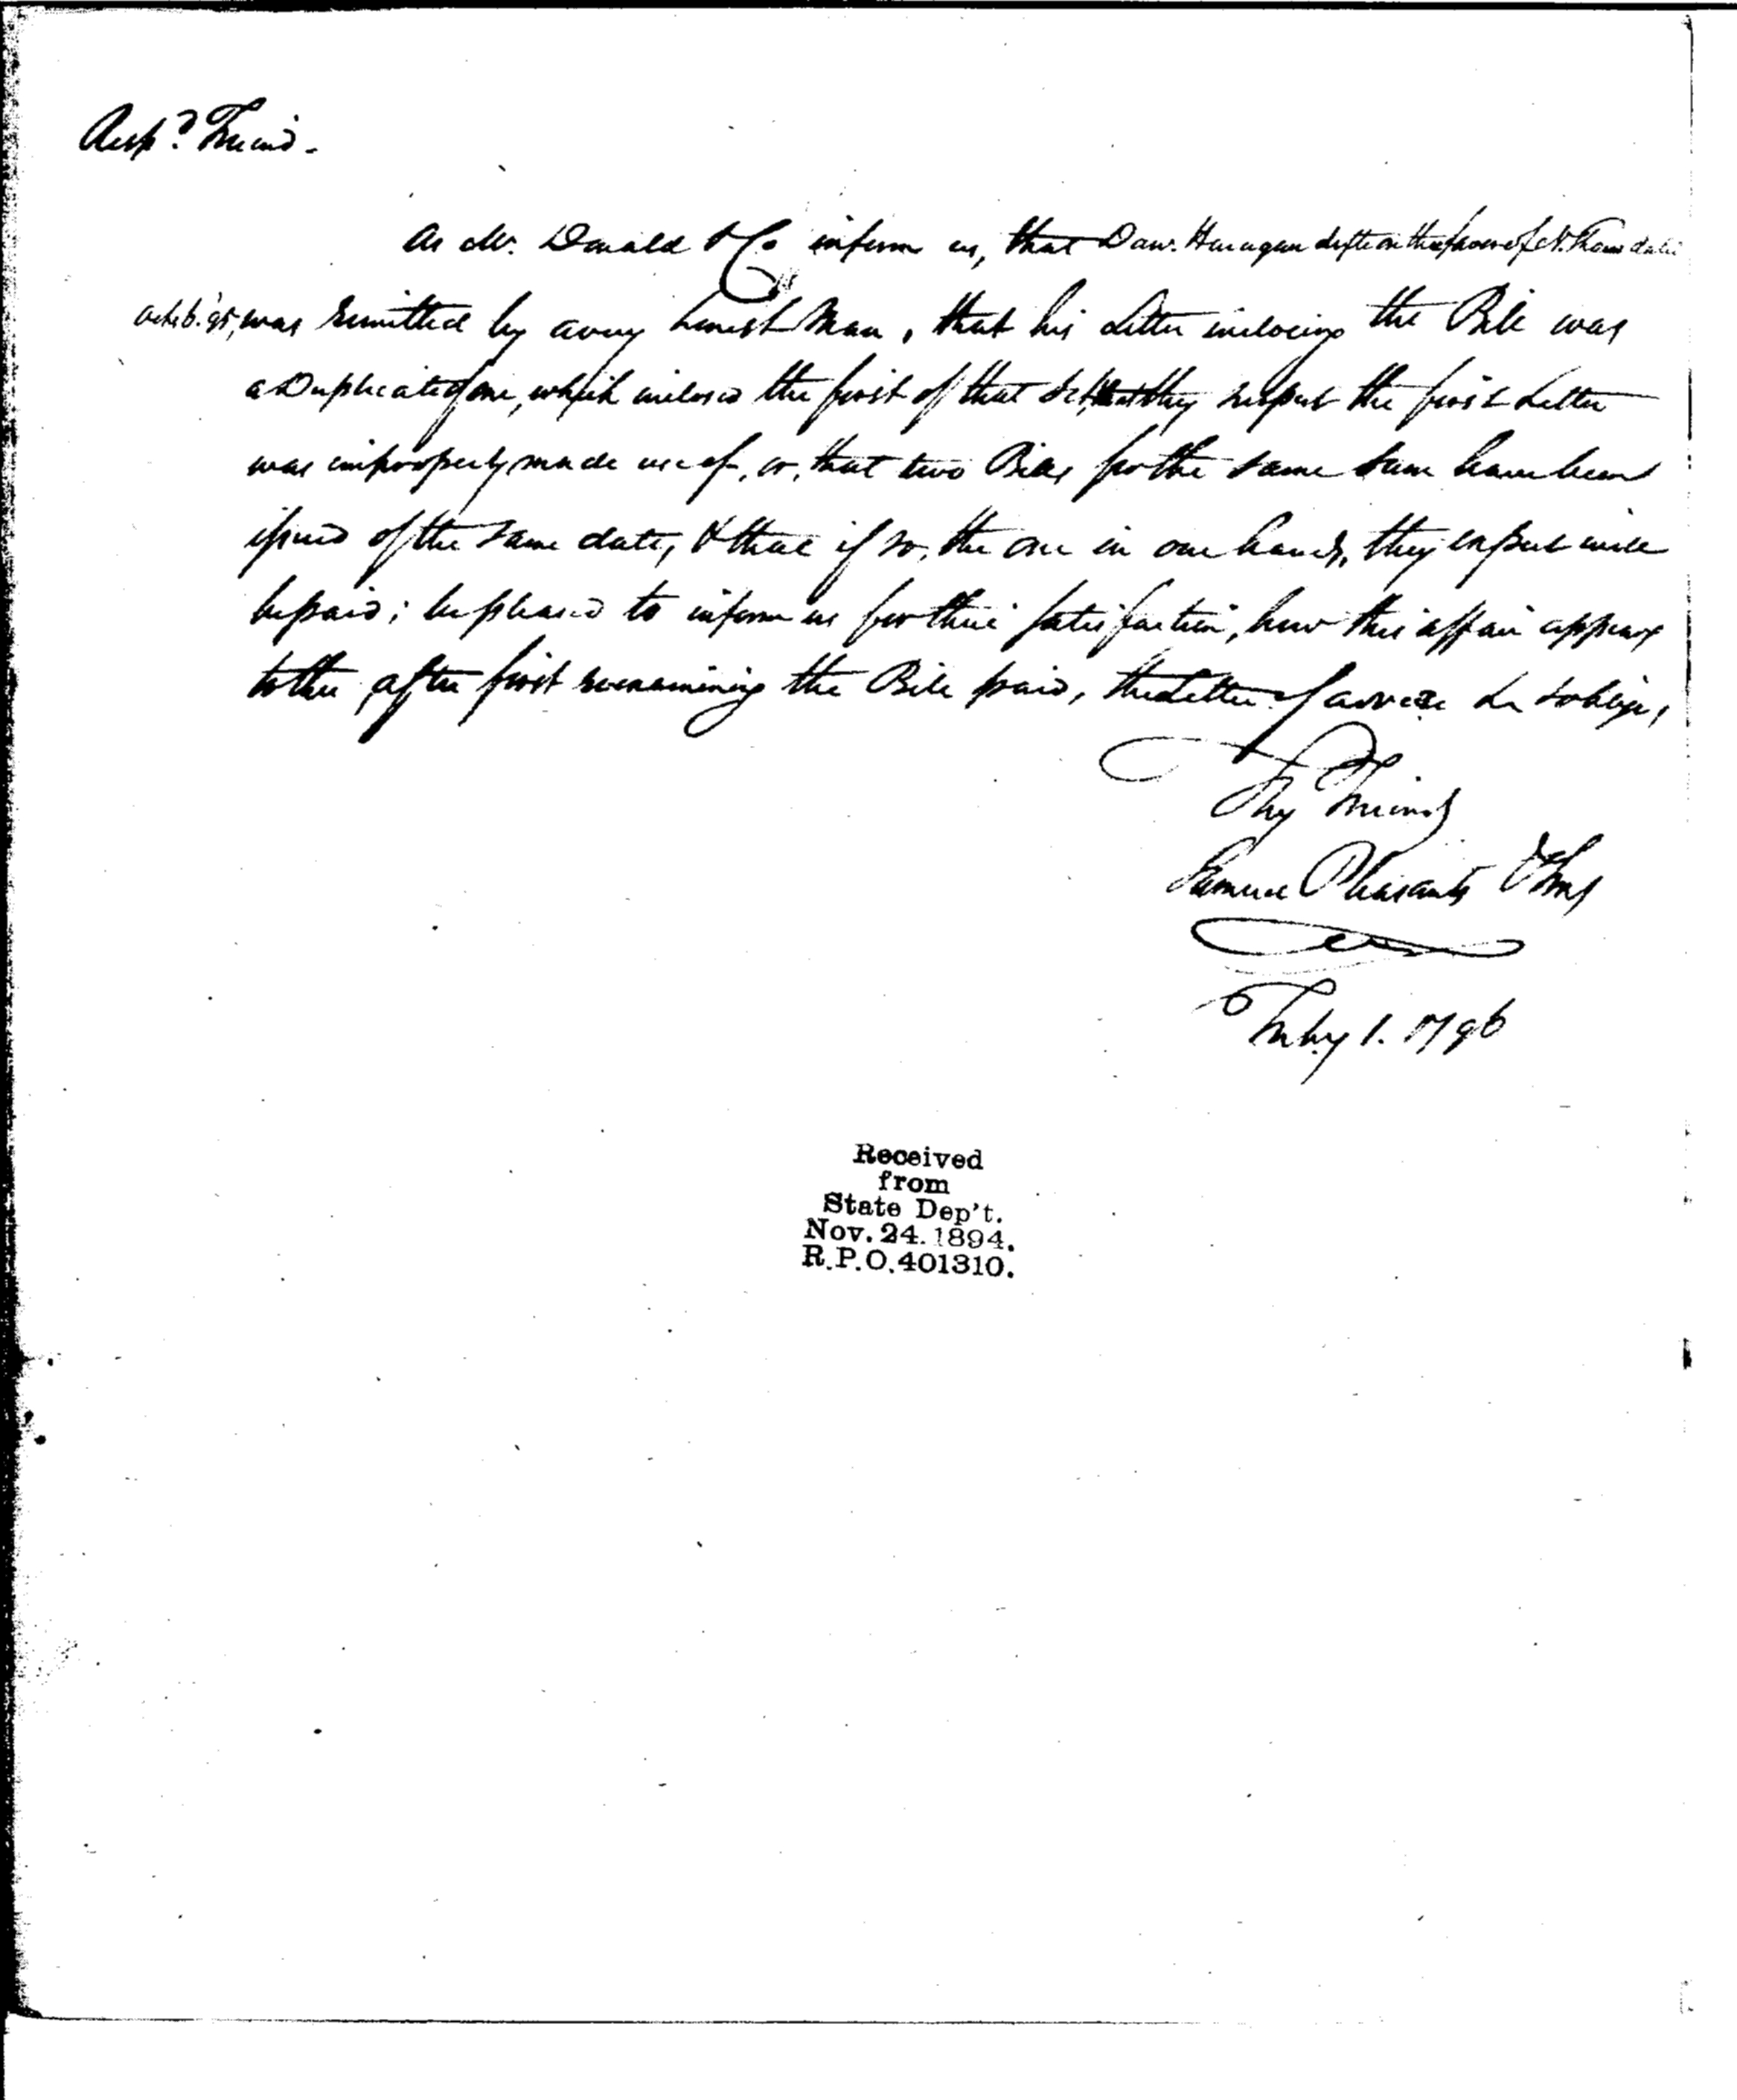 Resp.d Friend.
As Mr. Donald & Co inform us, that Danl. Hanagan dfts on thee favor of N. date
Octob. 6. 95, was remitted by a very honest Man, that his Letter inclosing the Bill was
a Duplicate of one, which inclosed the first of that set, that they suspect the first Letter
was improperly made use of, or, that two Bills for the same sum have been
issued of the same date, & that if so, the one in our hands, they expect will
be paid; be pleased to inform us for their satisfaction, how this affair appears
to thee after first reexamining the Bill paid, the Letter of advice & oblige,
Thy Friends
Samuel Pleasants & Sons
July 1. 1796
Received
from
State Dep't.
Nov. 24. 1894.
R.P.O. 401310.